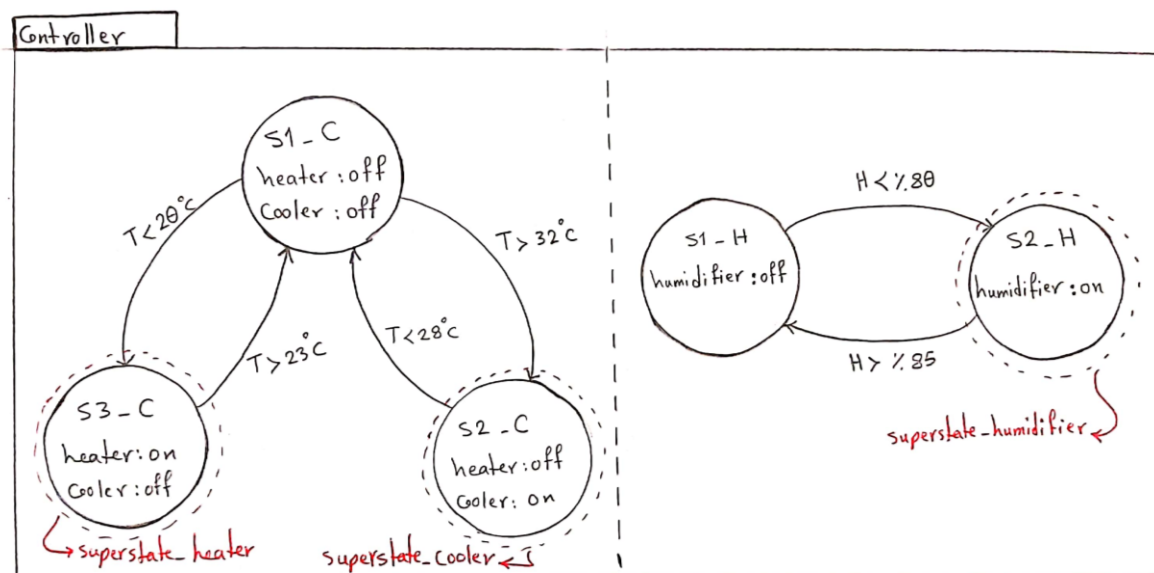 Controller
S1-C
heater:off
Cooler:off
T<20°C
T>32°C
T>23°C
T<28°C
S3-C
heater:on
Cooler:off
superstate_heater
S2-C
heater:off
Cooler:on
superstate_Cooler
H<%80
S1-H
humidifier:off
S2-H
humidifier:on
H>%85
superstate_humidifier